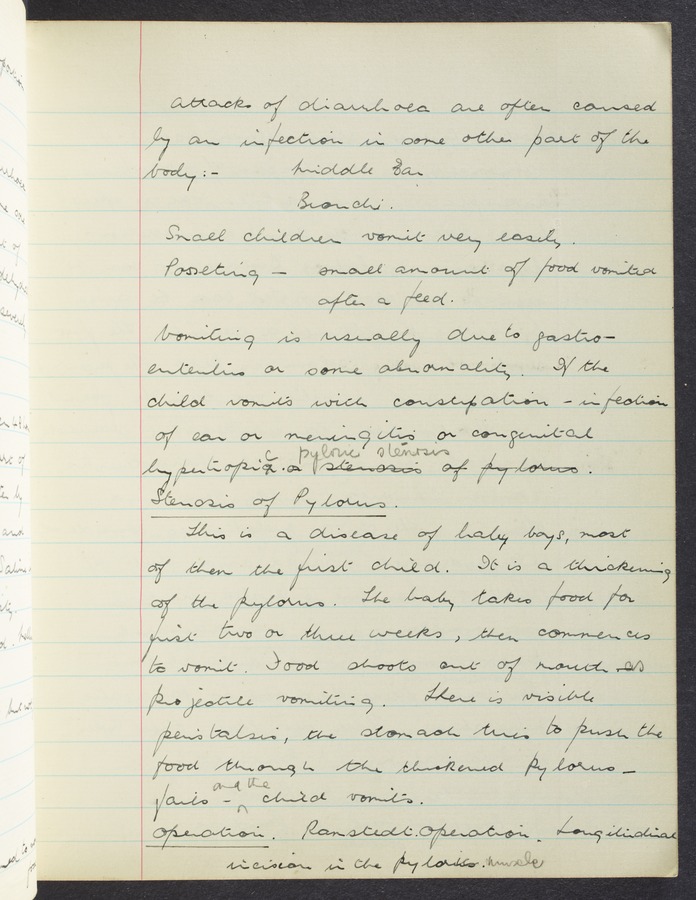 Attacks of diarrhoea are often caused
by an infection in some other part of the
body:- Middle Ear
Bronchi.
Small children vomit very easily.
Posseting - small amount of food vomited
after a feed.
Vomiting is usually due to gastro-
enteritis or some abnormality. If the
child vomits with constipation - infection
of ear or meningitis or congenital
pyloric stenosis
hypertopic. a stenosis of pylorus.
Stenosis of Pylorus.
This is a disease of baby boys, most
of then the first child. It is a thickening
of the pylorus. The baby takes food for
first two or three weeks, then commences
to vomit. Food shoots out of mouth as
projectile vomiting. There is visible
peristalsis, the stomach tries to push the
food through the thickened pylorus -
and the
fails - child vomits.
Operation. Ramstedt. Operation. Longitudinal
incision in the pyloric. muscle